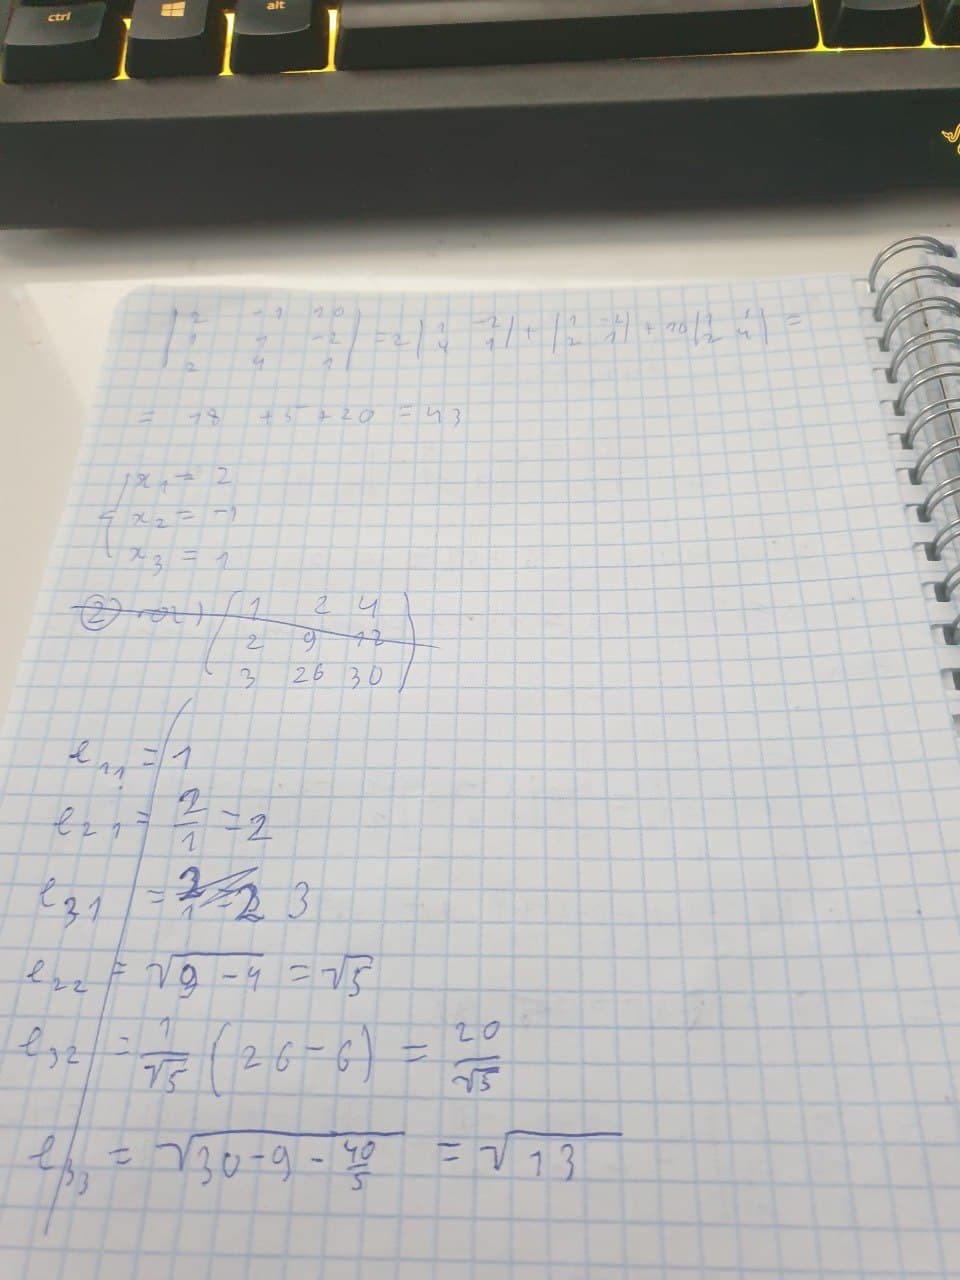 ctrl
alt
| 2 -1 10 |
| 1 1 -2 | = 2 | 1 -2 | + | 1 -2 | + 10 | 1 1 | =
| 2 4 1 | | 4 1 | | 2 1 | | 2 4 |
= 18 + 5 + 20 = 43
{ x₁ = 2
x₂ = -1
x₃ = 1
② a) ( 1 2 4
2 9 12
3 26 30 )
l₁₁ = 1
l₂₁ = 2/1 = 2
l₃₁ = 3
l₂₂ = √(9 - 4) = √5
l₃₂ = 1/√5 (26 - 6) = 20/√5
l₃₃ = √(30 - 9 - 40/5) = √13